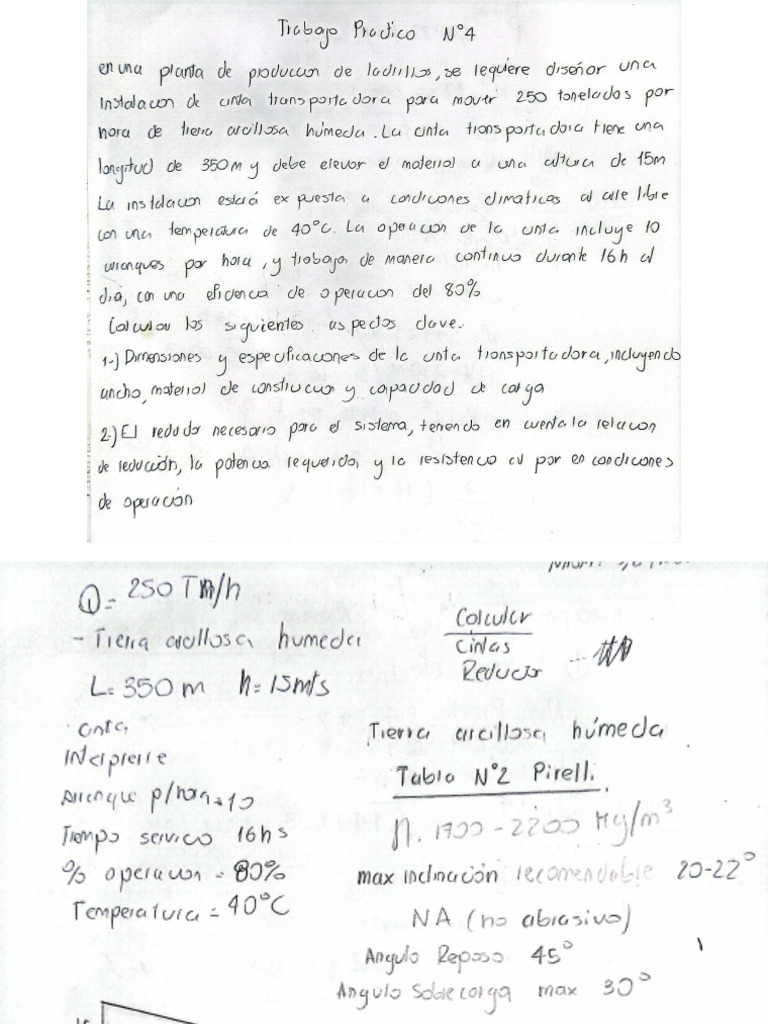 Trabajo Practico N°4
en una planta de produccion de ladrillos, se requiere diseñar una
instalacion de cinta transportadora para mover 250 toneladas por
hora de tierra arcillosa húmeda. La cinta transportadora tiene una
longitud de 350m y debe elevar el material a una altura de 15m
La instalacion estará expuesta a condiciones climaticas al aire libre
con una temperatura de 40°C. La operacion de la cinta incluye 10
arranques por hora, y trabaja de manera continua durante 16h al
dia, con una eficiencia de operacion del 80%
Calcular los siguientes aspectos clave.
1-) Dimensiones y especificaciones de la cinta transportadora, incluyendo
ancho, material de construccion y capacidad de carga
2-) El reductor necesario para el sistema, teniendo en cuenta la relacion
de reducción, la potencia requerida, y la resistencia en condiciones
de operación
Q= 250 Tm/h
- Tierra arcillosa humeda
L= 350 m h= 15mts
cinta
Intemperie
Arranque p/hora=10
Tiempo servico 16hs
% operacion = 80%
Temperatura = 40°C
Calcular
Cintas
Reductor
Tierra arcillosa húmeda
Tabla N°2 Pirelli.
1700-2200 Kg/m³
max inclinación recomendable 20-22°
NA (no abrasivo)
Angulo Reposo 45°
Angulo Sobrecarga max 30°